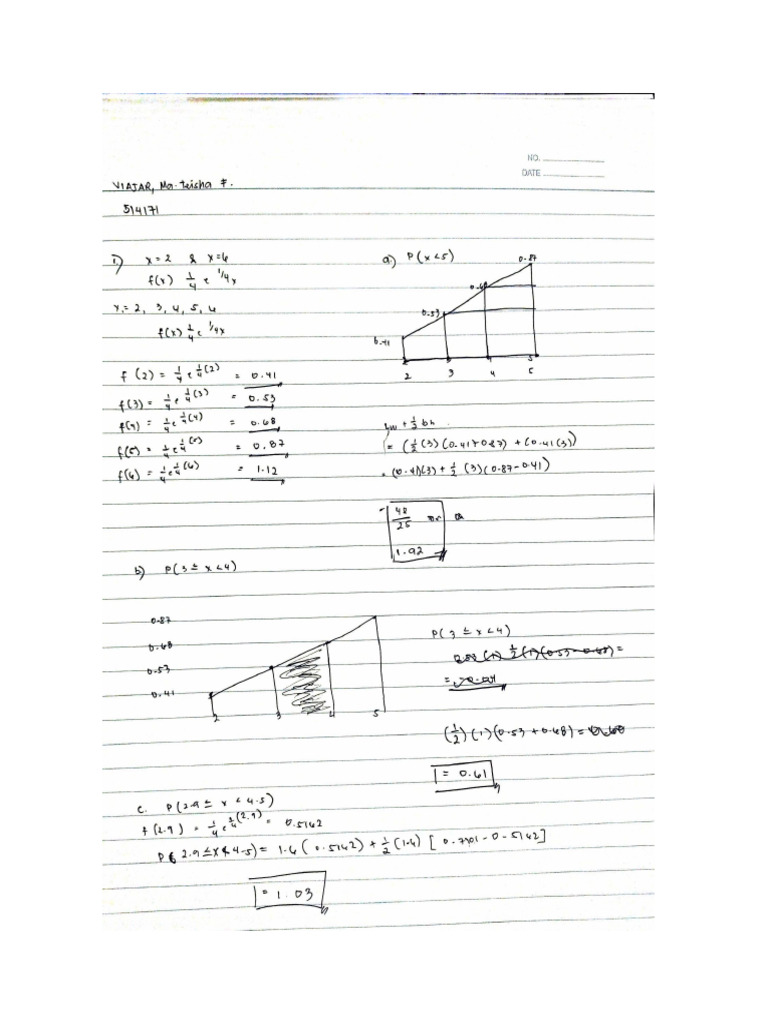 NO.
DATE
VIAJAR, Ma. Leisha F.
514171
1) x = 2 & x = 6
f(x) 1/4 e 1/4x
x = 2, 3, 4, 5, 6
f(x) 1/4 e 1/4x
f(2) = 1/4 e 1/4(2) = 0.41
f(3) = 1/4 e 1/4(3) = 0.53
f(4) = 1/4 e 1/4(4) = 0.68
f(5) = 1/4 e 1/4(5) = 0.87
f(6) = 1/4 e 1/4(6) = 1.12
a) P(x < 5)
0.87
0.68
0.53
0.41
2 3 4 5
lw + 1/2 bh
= (1/2 (3)(0.41+0.87) + (0.41(3))
= (0.41)(3) + 1/2 (3)(0.87-0.41)
48/25 or
1.92
b) P(3 ≤ x < 4)
0.87
0.68
0.53
0.41
2 3 4 5
P(3 ≤ x < 4)
(1/2)(1)(0.53 + 0.68) =
= 0.61
c. P(2.9 ≤ x < 4.5)
f(2.9) = 1/4 e 1/4(2.9) = 0.5142
P(2.9 ≤ x < 4.5) = 1.6(0.5142) + 1/2(1.6)[0.7701 - 0.5142]
= 1.03